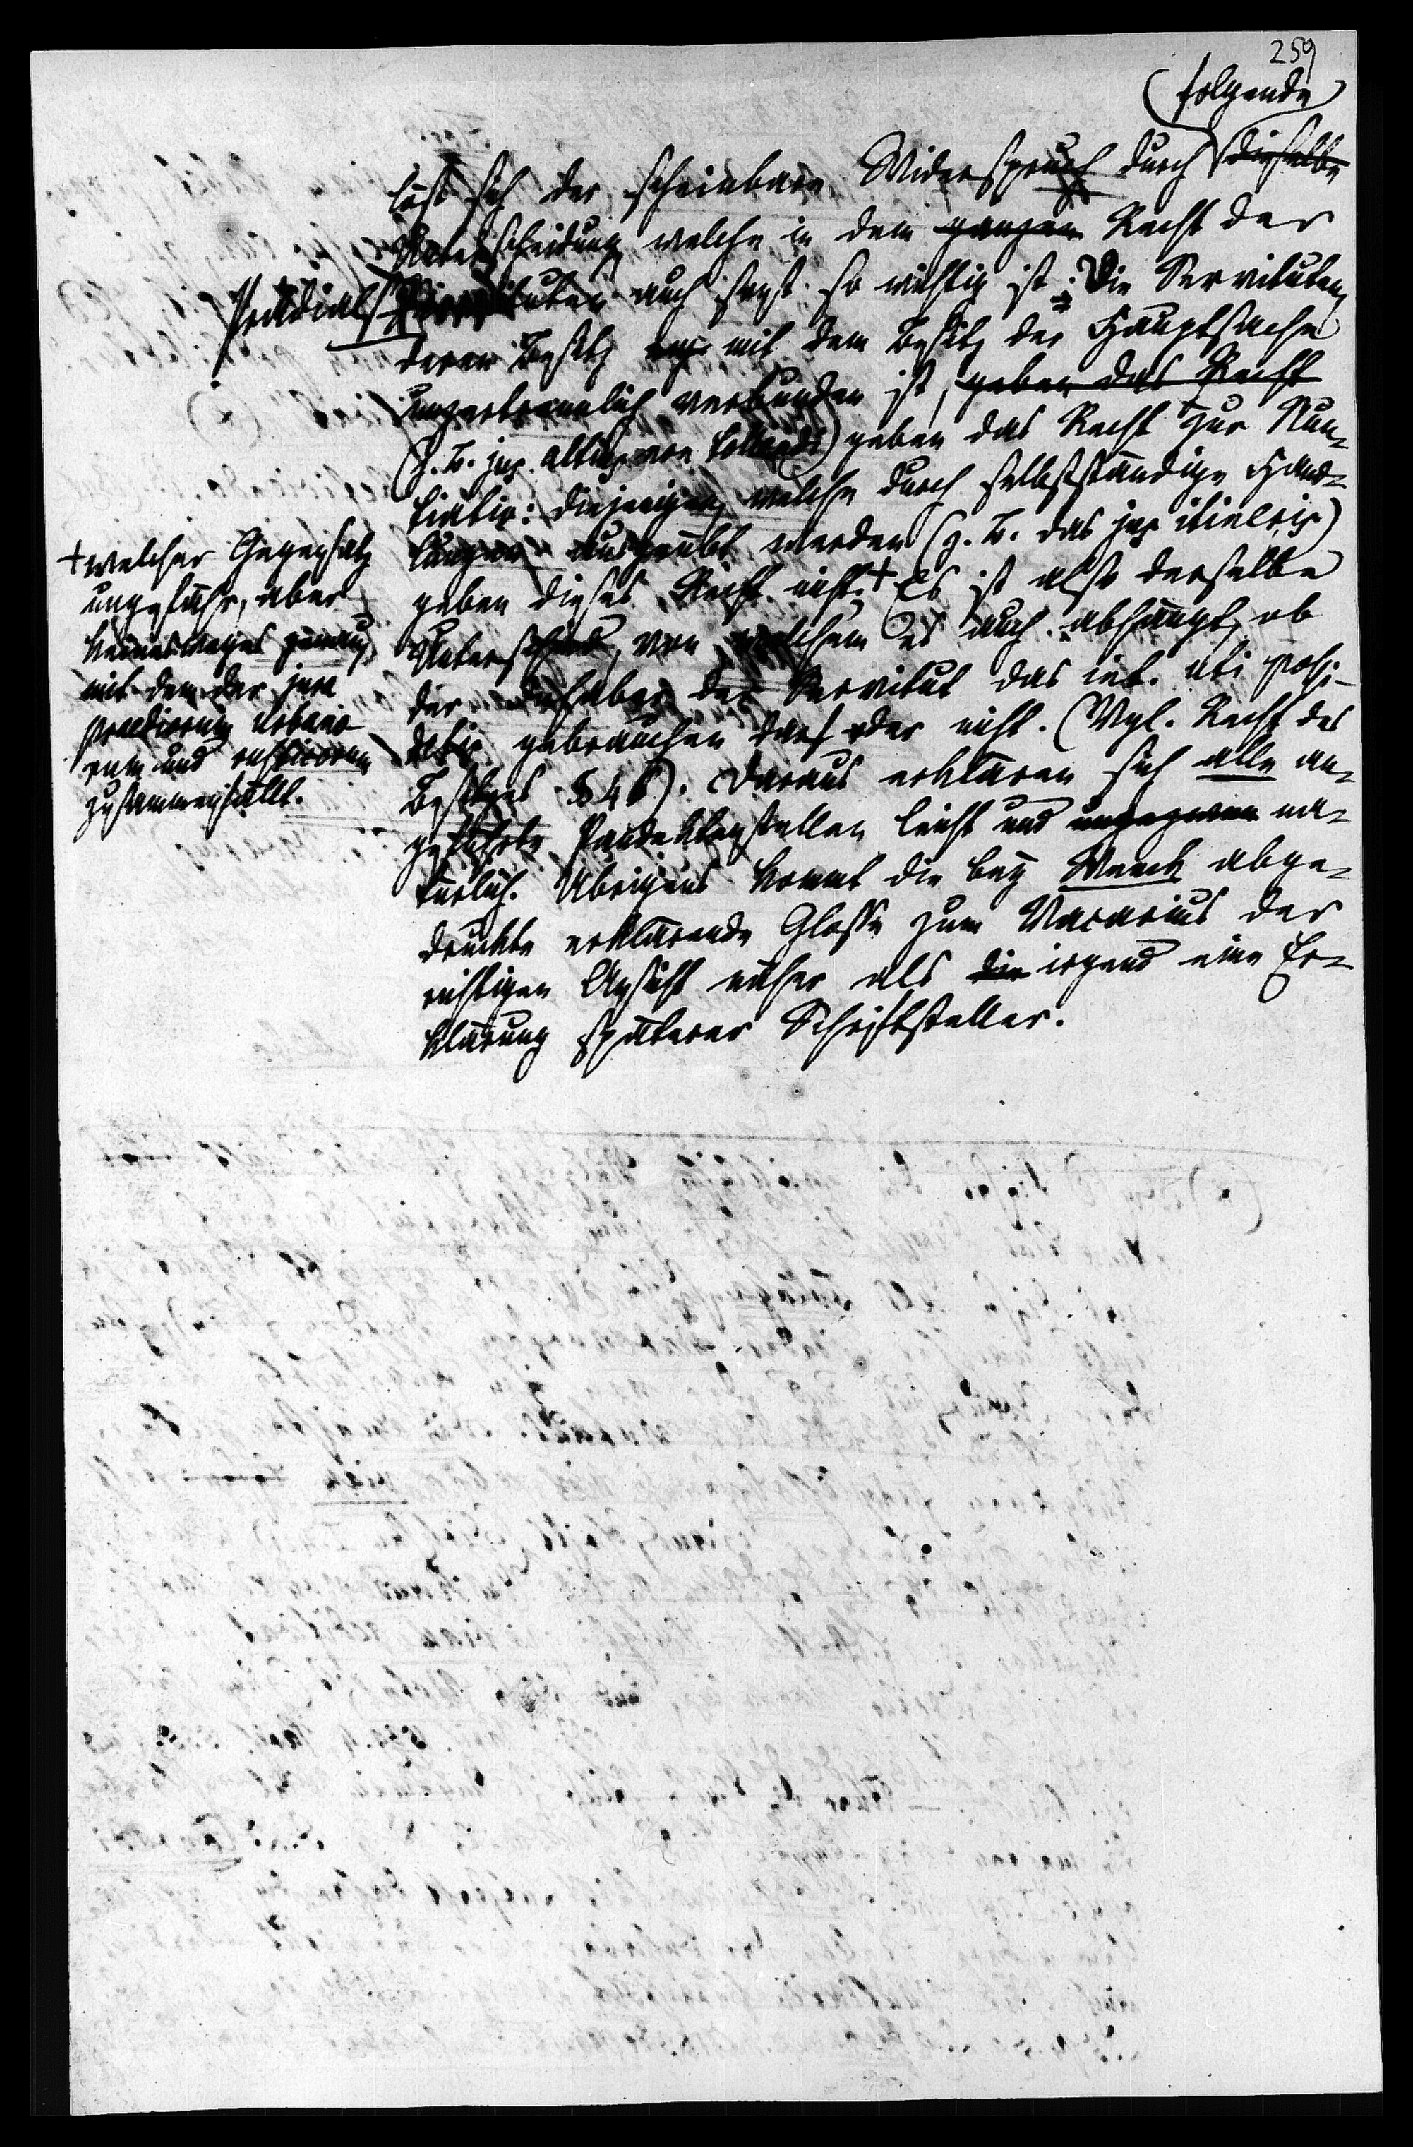 259
folgende
löst sich der scheinbare Widerspruch durch dieselbe
Unterscheidung welche in dem ganzen Recht der
Prädial Servituten auch sonst so wichtig ist: Die Servituten,
deren Besitz mit dem Besitz der Hauptsache
unzertrennlich verbunden ist, geben das Recht
(z. B. jus altius non tollendi) geben das Recht zur Nun-
tiatio: diejenigen, welche durch selbstständige Hand-
lungen ausgeübt werden (z. B. das jus itineris)
geben dieses Recht nicht. + Es ist also derselbe
Unterschied, von welchem es auch abhängt, ob
der Inhaber der Servitut das int. uti possi-
detis gebrauchen darf oder nicht. (Vgl. Recht des
Besitzes § 46). Daraus erklären sich alle an-
geführte Pandektenstellen leicht und na-
türlich. Übrigens kommt die bey Wenck abge-
druckte erklärende Glosse zum Vacarius der
richtigen Ansicht näher als die irgend eine Er-
klärung späterer Schriftsteller.
+ welcher Gegensatz
ungefähr, aber
keineswegs genau,
mit dem der jura
praediorum urbano-
rum und rusticorum
zusammenfällt.